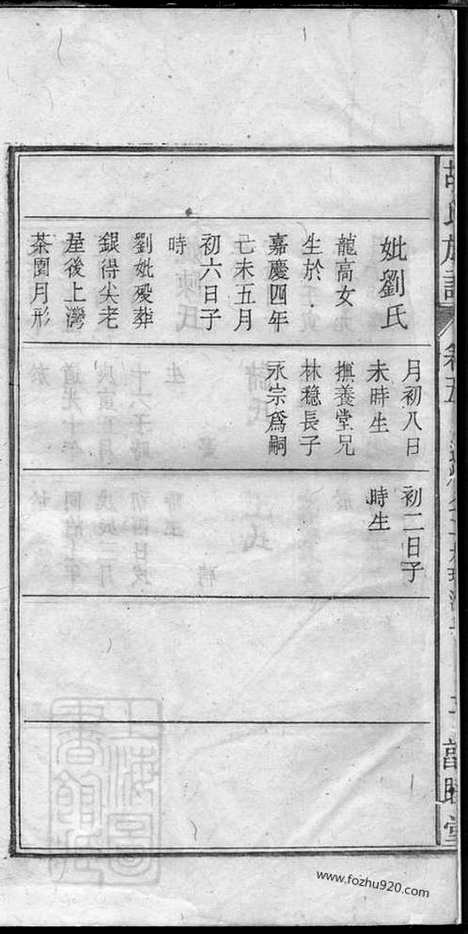 胡氏族譜
卷五
妣劉氏
龍高女
生於
嘉慶四年
己未五月
初六日子
時
劉妣歿葬
銀得尖老
屋後上灣
茶園月形
月初八日
未時生
撫養堂兄
林穩長子
永宗爲嗣
初二日子
時生
上海圖
書館藏
www.fozhu920.com